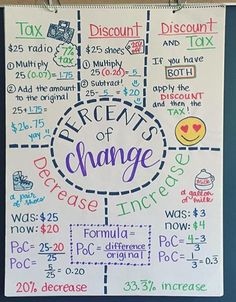 Tax
$25 radio
7% tax
① Multiply
25(0.07)=1.75
② Add the amount to the original
25+1.75=
$26.75
yay!
Discount
$25 shoes
20% off
① Multiply
25(0.20)=5
② Subtract!
25-5=$20
Discount
AND Tax
If you have
BOTH
apply the
DISCOUNT
and then the
TAX!
PERCENTS
of
change
Decrease
a pair of shoes
was: $25
now: $20
PoC = 25-20
25
5
25 = 0.20
20% decrease
Increase
a gallon of milk
was: $3
now: $4
PoC = 4-3
3
PoC = 1
3 = 0.3
33.3% increase
Formula =
PoC = difference
original